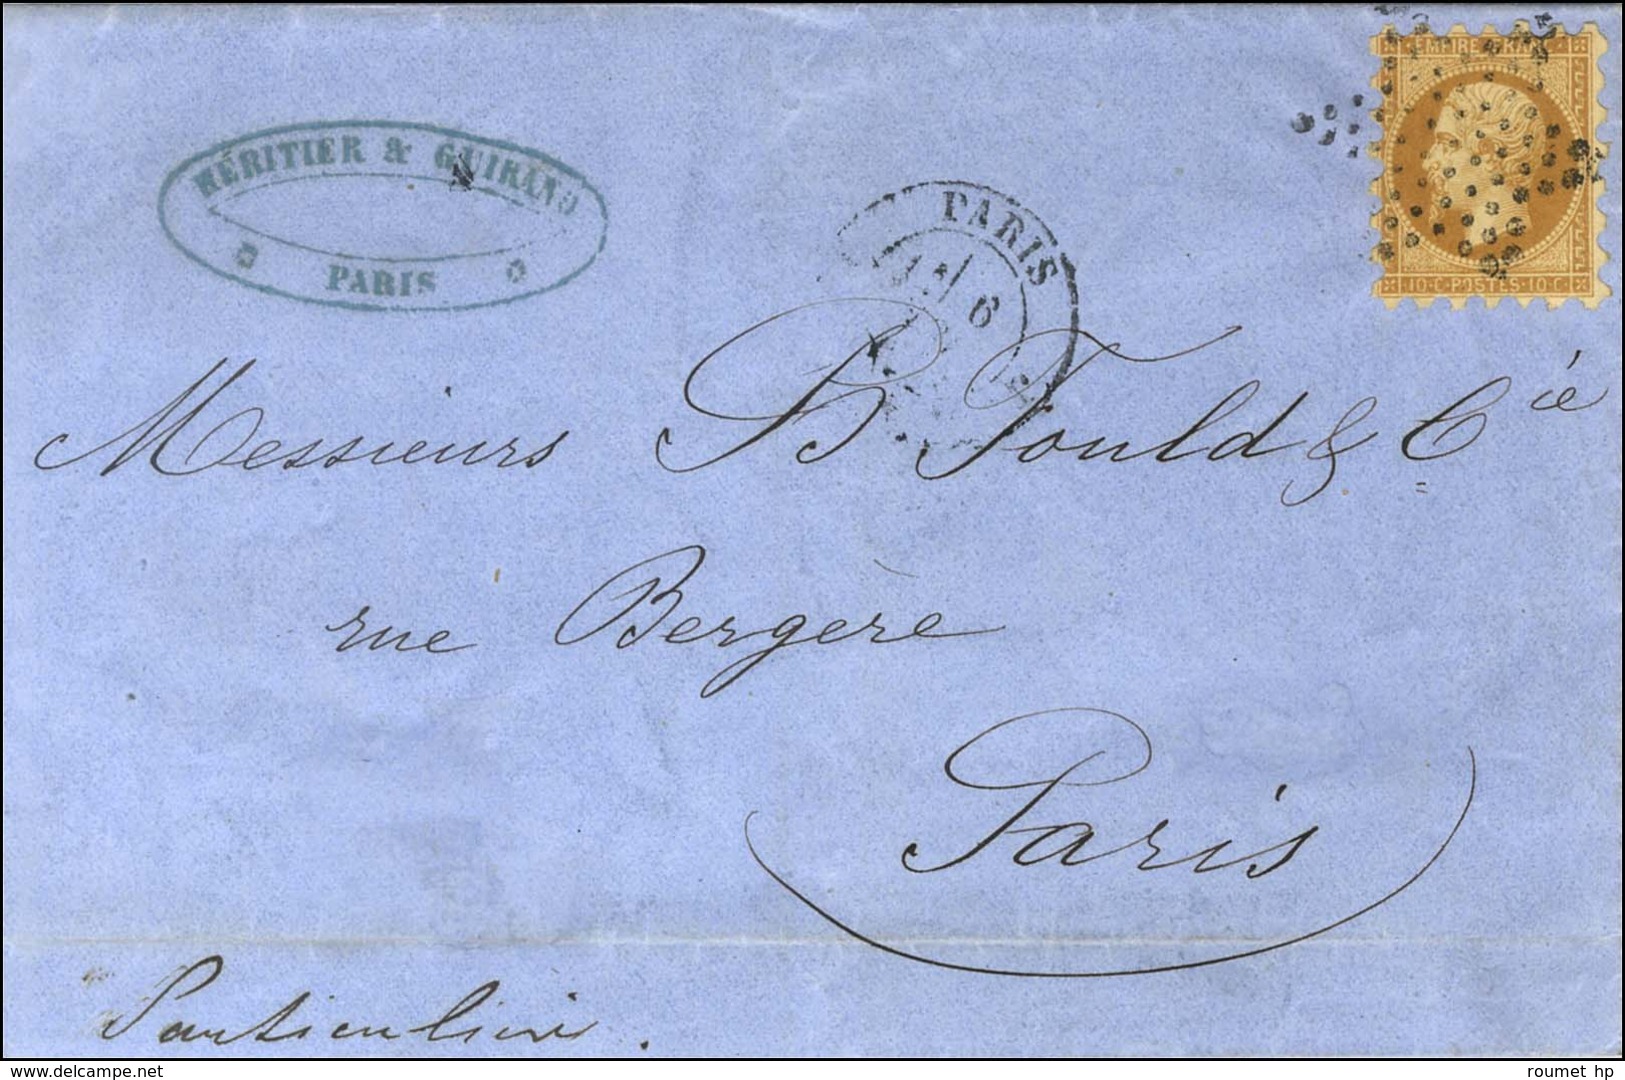 HÉRITIER & GUIRAND
PARIS
PARIS
6
EMPIRE FRANC
10·C·POSTES·10·C
Messieurs B Fould & Cie
rue Bergère
Paris
Particulière.
delcampe.net
roumet hp